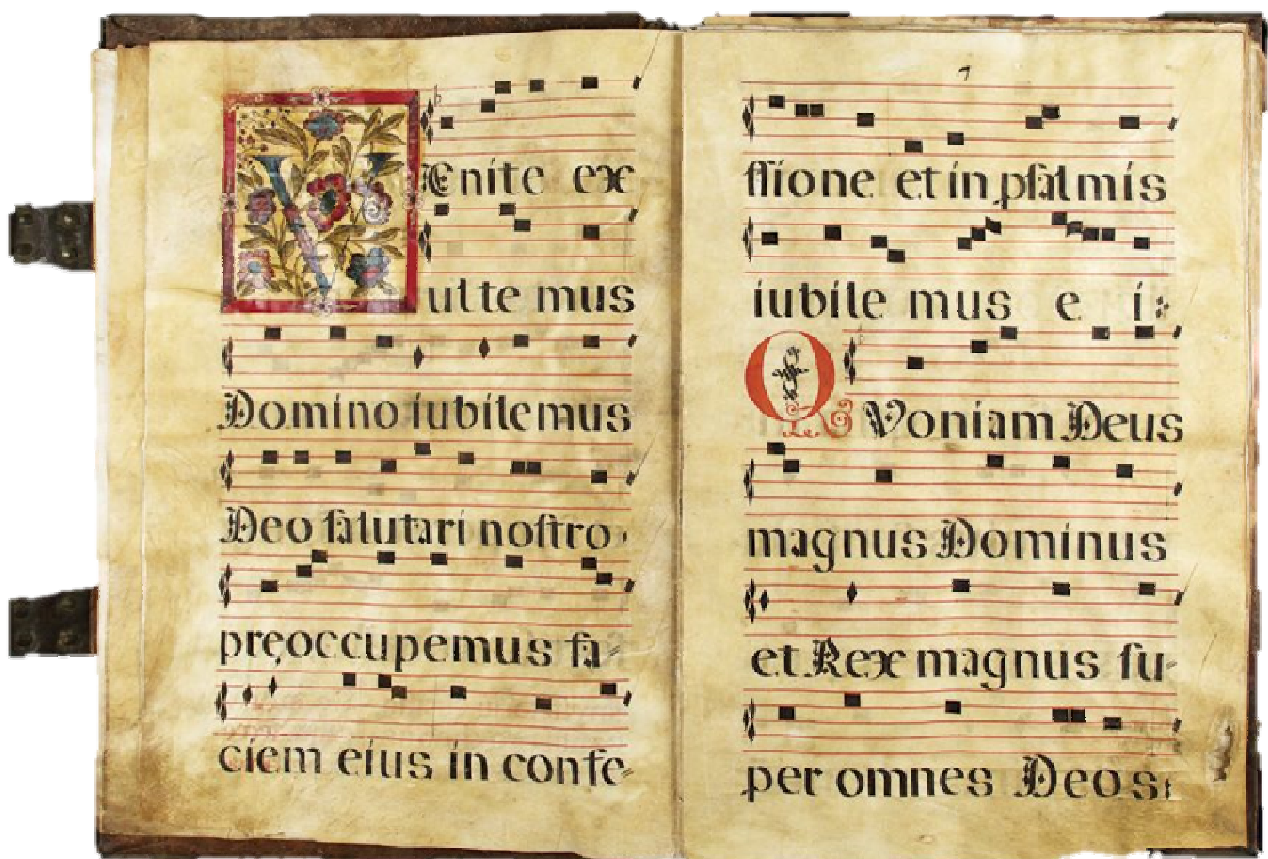 VEnite ex
ulte mus
Domino iubilemus
Deo salutari nostro
pręoccupemus fa-
ciem eius in confe-
ssione et in psalmis
iubile mus e i:
QVoniam Deus
magnus Dominus
et Rex magnus su-
per omnes Deos: